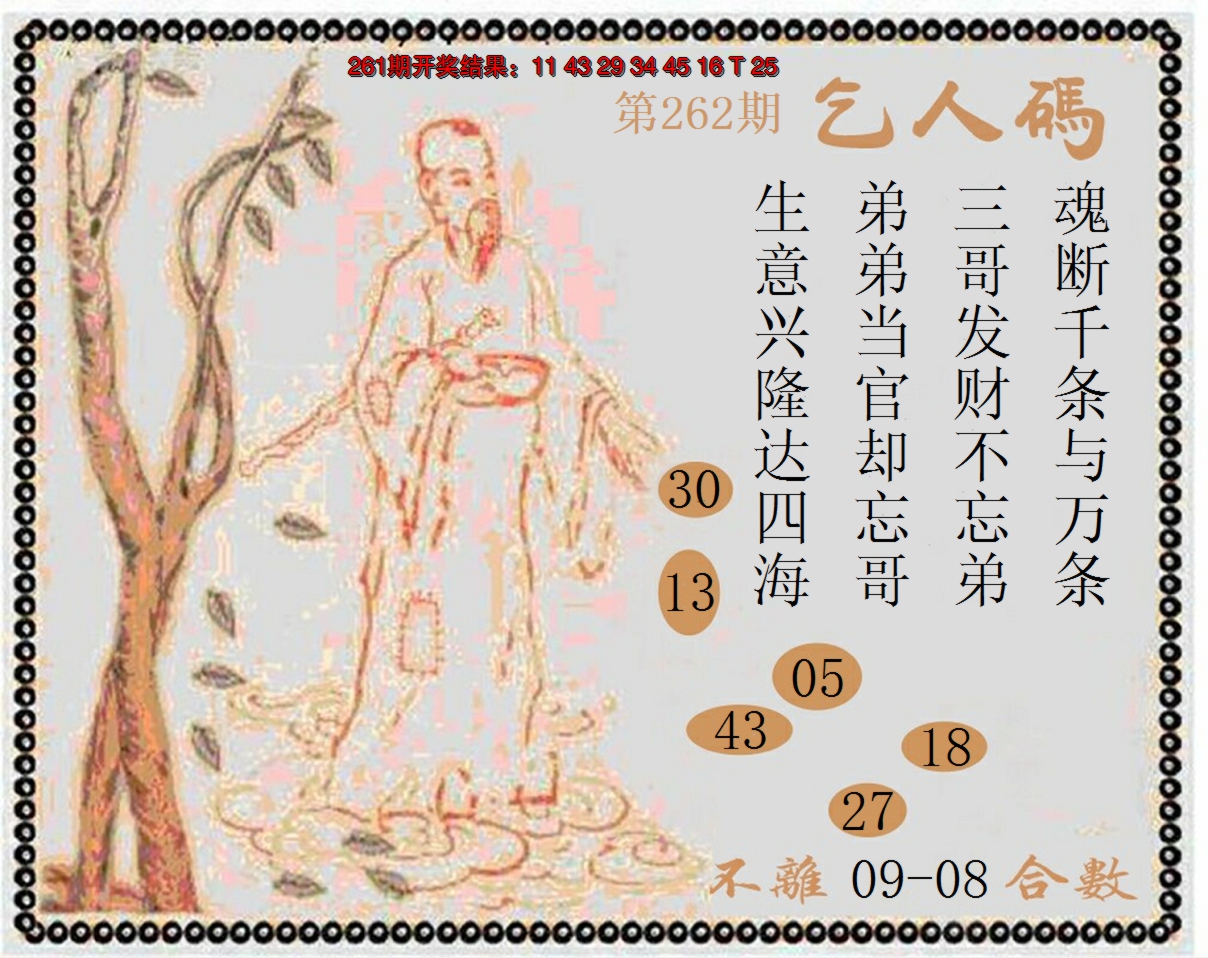 261期开奖结果：11 43 29 34 45 16 T 25
第262期 乞人碼
魂断千条与万条
三哥发财不忘弟
弟弟当官却忘哥
生意兴隆达四海
30
13
05
43
18
27
不離 09-08 合數